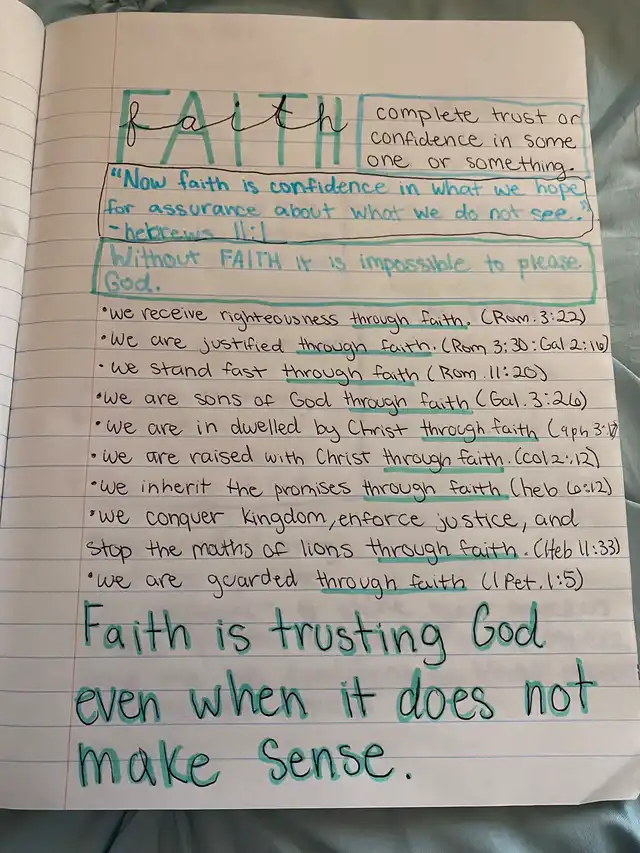 FAITH
faith
complete trust or
confidence in some
one or something.
"Now faith is confidence in what we hope
for assurance about what we do not see."
-hebrews 11:1
Without FAITH it is impossible to please
God.
•we receive righteousness through faith. (Rom. 3:22)
•We are justified through faith. (Rom 3:30: Gal 2:16)
•we stand fast through faith (Rom. 11:20)
•we are sons of God through faith (Gal. 3:26)
•we are in dwelled by Christ through faith (eph 3:17
•we are raised with Christ through faith. (col 2:12)
•we inherit the promises through faith (heb 6:12)
•we conquer Kingdom, enforce justice, and
stop the mouths of lions through faith. (Heb 11:33)
•we are guarded through faith (1 Pet. 1:5)
Faith is trusting God
even when it does not
make sense.